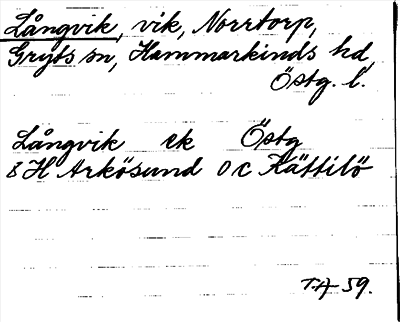 Långvik, vik, Norrtorp,
Gryts sn, Hammarkinds hd,
Östg. l.
Långvik ek Östg
8 H Arkösund 0 c Kättilö
T.A 59.